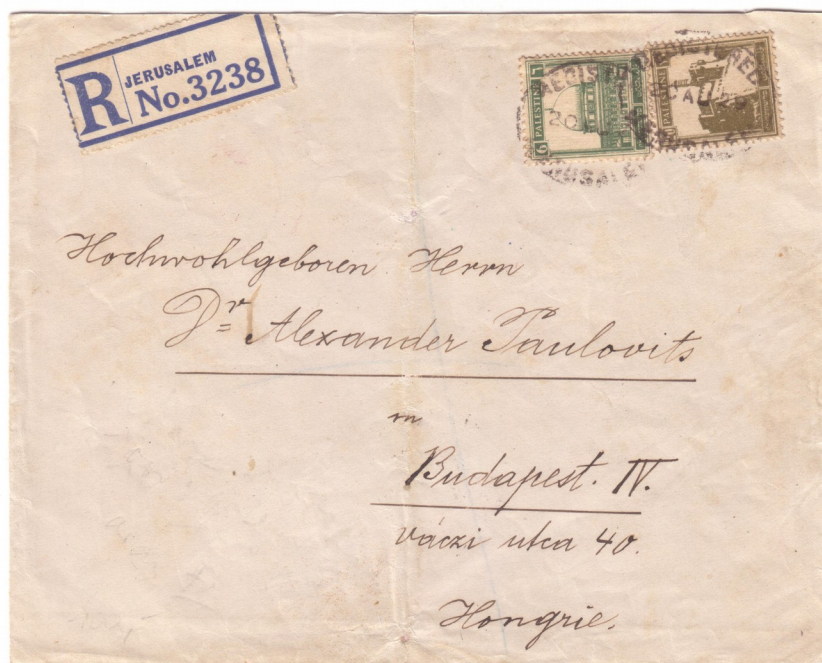 R JERUSALEM
No.3238
PALESTINE
REGISTERED
20 AU 29
JERUSALEM
Hochwohlgeboren Herrn
Dr Alexander Paulovits
in
Budapest. IV.
váczi utca 40.
Hongrie.